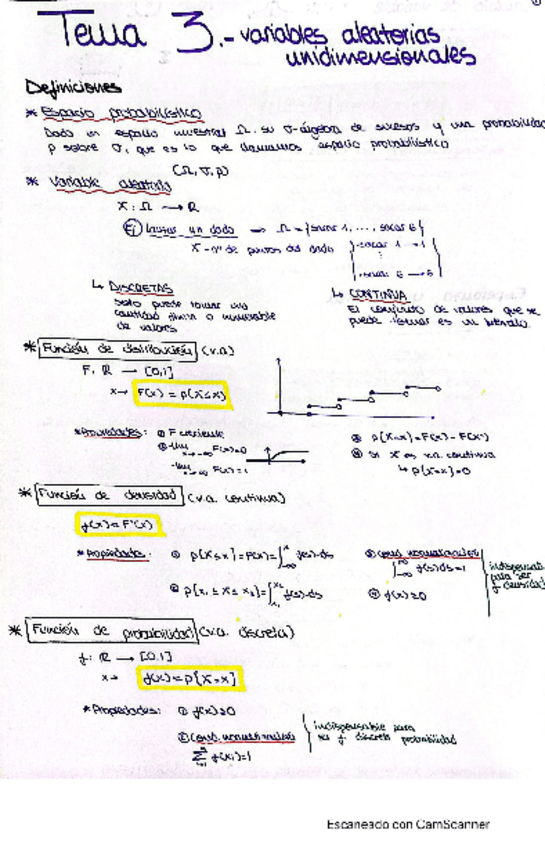 Tema 3.- variables aleatorias
unidimensionales
Definiciones
* Espacio probabilístico
Dado un espacio muestral Ω, su σ-álgebra de sucesos y una probabilidad
p sobre σ, que es lo que llamamos espacio probabilístico
(Ω, σ, p)
* Variable aleatoria
X: Ω → R
Ej lanzar un dado → Ω = {sacar 1, ..., sacar 6}
X = nº de puntos del dado
sacar 1 → 1
⋮
sacar 6 → 6
↳ DISCRETAS
Solo puede tomar una
cantidad finita o numerable
de valores
↳ CONTINUA
El conjunto de valores que se
puede tomar es un intervalo.
* Función de distribución (v.a)
F: R → [0,1]
x → F(x) = p(X≤x)
* Propiedades: ① F creciente
② lim x→-∞ F(x)=0
F(x)=1
p[X=x] = F(x) - F(x⁻)
④ Si X es v.a. continua
↳ p[X=x]=0
* Función de densidad (v.a. continua)
f(x) = F'(x)
* Propiedades: ① p[X≤x] = F(x) = ∫_{-∞}^{x} f(s)·ds
② p[x₁ ≤ X ≤ x₂] = ∫_{x₁}^{x₂} f(s)·ds
③ Cond. normalización
∫_{-∞}^{∞} f(s)ds=1
④ f(x)≥0
indispensable
para ser
f densidad
* Función de probabilidad (v.a. discreta)
f: R → [0,1]
x → f(x) = p[X=x]
* Propiedades: ① f(x)≥0
② Cond. normalización
f(xi)=1
indispensable para
ser f discreta probabilidad
Escaneado con CamScanner